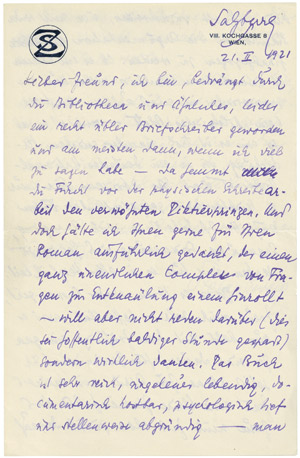 SZ
Salzburg
VIII. KOCHGASSE 8
WIEN,
21. II 1921
Lieber Freund, ich bin, bedrängt durch
die Bibliotheca und Ähnliches, leider
ein recht übler Briefschreiber geworden
und am meisten dann, wenn ich viel
zu sagen habe — da hemmt
die Furcht vor der physischen Schreibar-
beit den verwöhnten Dictierprinzen. Und
doch hätte ich Ihnen gerne für Ihren
Roman ausführlich gedankt, der einen
ganz unendlichen Complex von Fra-
gen zur Entknäulung einem hinrollt
— will aber nicht reden darüber (dies
sei hoffentlich baldiger Stunde gespart)
sondern wirklich danken. Das Buch
ist sehr reich, ungeheuer lebendig, do-
cumentarisch kostbar, psychologisch tief
und stellenweise abgründig — man